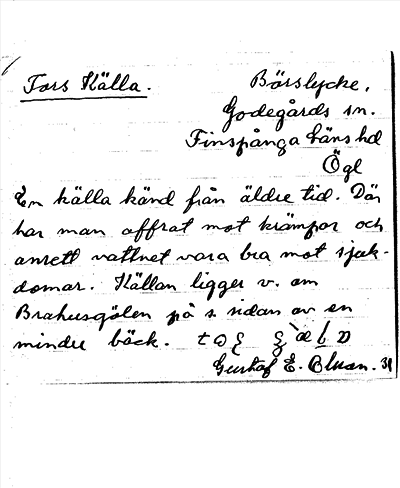 Tors Källa.
Börslycke,
Godegårds sn.
Finspånga läns hd
Ögl
En källa känd från äldre tid. Där
har man offrat mot krämpor och
ansett vattnet vara bra mot sjuk-
domar. Källan ligger v. om
Brahusgölen på s sidan av en
mindre bäck.
Gustaf E. Olsson. 31